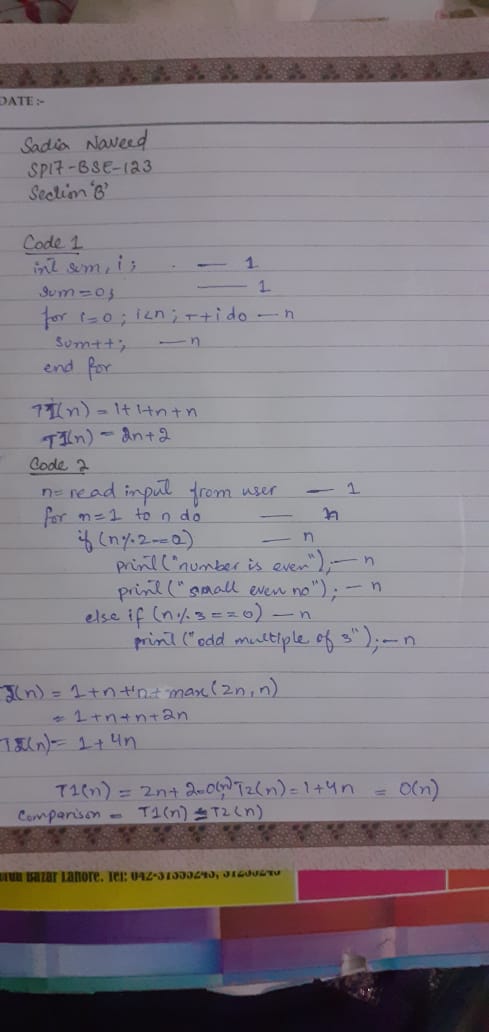 DATE :-
Sadia Naveed
SP17-BSE-123
Section 'B'
Code 1
int sum, i ; — 1
sum = 0; — 1
for i=0 ; i<n ; ++i do — n
sum++; — n
end for
T1(n) = 1+1+n+n
T1(n) = 2n+2
Code 2
n= read input from user — 1
for n=1 to n do — n
if (n%2==0) — n
print ("number is even"); — n
print ("small even no"); — n
else if (n%3==0) — n
print ("odd multiple of 3"); — n
(n) = 1+n+n+max(2n,n)
= 1+n+n+2n
(n) = 1+4n
T1(n) = 2n+2=O(n) T2(n)=1+4n = O(n)
Comparison = T1(n) T2(n)
Bazar Lahore. Tel: 042-